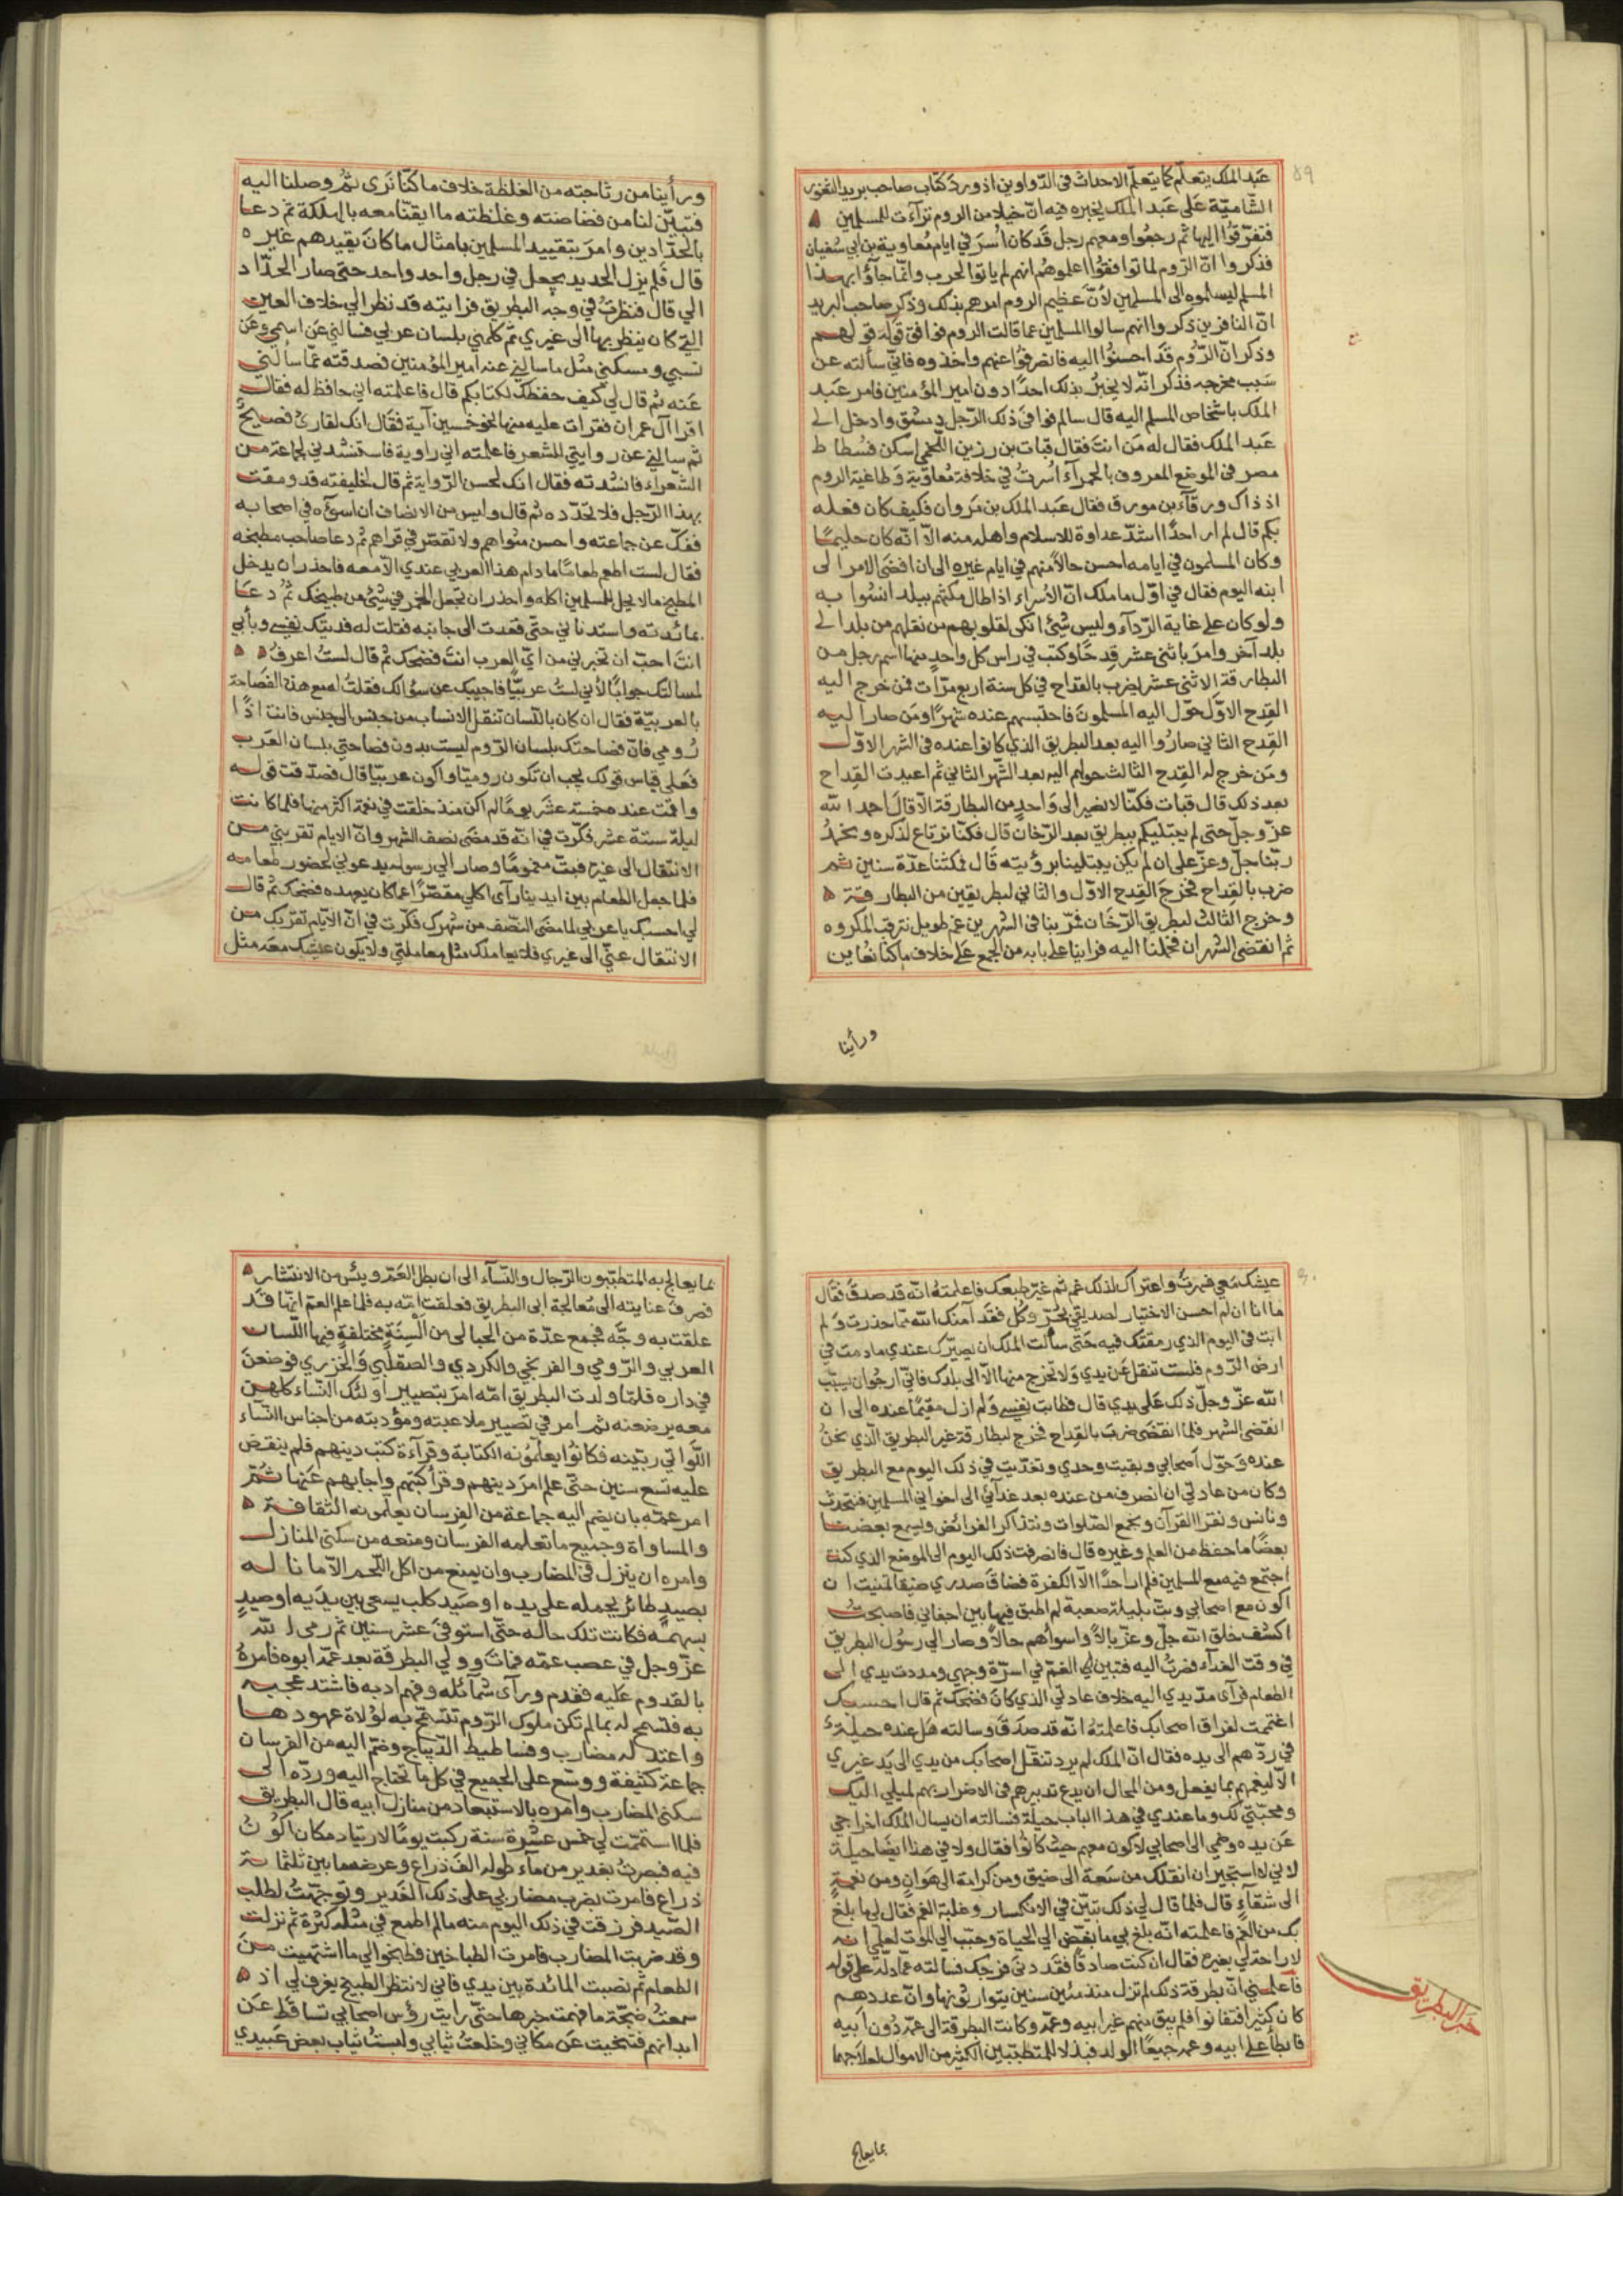 عبد الملك يتعلم كما يتعلم الاحداث في الدواوين اذ ورد كتاب صاحب بريد الثغور
الشامية على عبد الملك يخبره فيه ان خيلا من الروم تراءت للمسلمين
فتفرقوا اليها ثم رجعوا ومعهم رجل قد كان اُسر في ايام معاوية بن ابي سفيان
فذكروا ان الروم لما توافقوا اعلموهم انهم لم ياتوا لحرب وانما جاؤا بهذا
المسلم ليسلموه الى المسلمين لأن عظيم الروم امرهم بذلك وذكر صاحب البريد
ان النافرين ذكروا انهم سالوا المسلمين عما قالت الروم فوافق قوله قولهم
وذكر ان الروم قد احسنوا اليه فانصرفوا عنهم واخذوه فاني سألته عن
سبب مخرجه فذكر انه لا يخبر بذلك احدًا دون امير المؤمنين فامر عبد
الملك باشخاص المسلم اليه قال سالم فوافى ذلك الرجل دمشق وادخل الى
عبد الملك فقال له من انت فقال قباث بن رزين اللخمي اسكن فسطاط
مصر في الموضع المعروف بالحمرآء اُسرتُ في خلافة معاوية وطاغية الروم
اذ ذاك ورقاء بن مورق فقال عبد الملك بن مروان فكيف كان فعله
بكم قال لم ار احدًا اشد عداوة للاسلام واهله منه الا انه كان حليمًا
وكان المسلمون في ايامه احسن حالًا منهم في ايام غيره الى ان افضى الامر الى
ابنه اليوم فقال في اول ما ملك ان الأسراء اذا طال مكثهم ببلد انسوا به
ولو كان على غاية الردآء وليس شئ انكى لقلوبهم من نقلهم من بلد الى
بلد آخر وامر باثنى عشر قدحًا وكتب في راس كل واحد منها اسم رجل من
البطارقة الاثنى عشر يضرب بالقداح في كل سنة اربع مرات فمن خرج اليه
القدح الاول حوّل اليه المسلمون فاحتبسهم عنده شهرًا ومن صار اليه
القدح الثاني صاروا اليه بعد البطريق الذي كانوا عنده في الشهر الاول
ومن خرج له القدح الثالث حولهم اليه بعد الشهر الثاني ثم اعيدت القداح
بعد ذلك قال قباث فكنا لا نصير الى واحد من البطارقة الا قال احمدوا الله
عز وجل حتى لم يبتليكم ببطريق بعد الرخان قال فكنا نرتاع لذكره ونحمدُ
ربنا جل وعز على ان لم يكن يبتلينا برؤيته قال فمكثنا عدة سنين ثم
ضرب بالقداح فخرج القدح الاول والثاني لبطريقين من البطارقة
وخرج الثالث لبطريق الرخان فمر بنا في الشهرين غم طويل نترقب المكروه
ثم انقضى الشهران فحملنا اليه فرأينا على بابه من الجمع على خلاف ما كنا نعاين
ورأينا
ورأينا من رثاجته من الغلظة خلاف ما كنا نرى ثم وصلنا اليه
فتبين لنا من فضاضته وغلظته ما ايقنا معه بالهلكة ثم دعا
بالحدادين وامر بتقييد المسلمين بامثال ما كان يقيدهم غيره
قال فلم يزل الحديد يجعل في رجل واحد واحد حتى صار الحداد
الي قال فنظرتُ في وجه البطريق فرايته قد نظر الي خلاف العين
التي كان ينظر بها الى غيري ثم كلمني بلسان عربي فسالني عن اسمي وعن
نسبي ومسكني مثل ما سالني عنه امير المؤمنين فصدقته عما سالني
عنه ثم قال لي كيف حفظك لكتابكم قال فاعلمته اني حافظ له فقال
اقرا آل عمران فقرات عليه منها نحو خمسين آية فقال انك لقارئ فصيحٌ
ثم سالني عن روايتي للشعر فاعلمته اني راوية فاستنشدني لجماعة من
الشعراء فانشدته فقال انك لحسن الرواية ثم قال لخليفته قد ومقت
بهذا الرجل فلا تحدده ثم قال وليس من الانصاف ان اسوءه في اصحابه
ففك عن جماعته واحسن مثواهم ولا تقصر في قراهم ثم دعا صاحب مطبخه
فقال لست اطعم طعامًا ما دام هذا العربي عندي الا معه فاحذر ان يدخل
المطبخ ما لا يحل للمسلمين اكله واحذر ان تجعل الخمر في شئ من طبيخك ثم دعا
بمائدته واستدناني حتى قعدت الى جانبه فقلت له فديتك بنفسي وبأبي
انت احب ان تخبرني من اي العرب انت فضحك ثم قال لستُ اعرف
لمسالتك جوابًا لأني لستُ عربيًا فاجيبك عن سؤالك فقلتُ له مع هذه الفصاحة
بالعربية فقال ان كان باللسان تنقل الانساب من جنس الى جنس فانت اذًا
رُومي فان فصاحتك بلسان الروم ليست بدون فصاحتي بلسان العرب
فعلى قياس قولك يجب ان تكون روميًا واكون عربيًا قال فصدقت قوله
واقمت عنده خمسة عشر يومًا لم اكن منذ خلقت في نعمة اكثر منها فلما كانت
ليلة ستة عشر فكرت في انه قد مضى نصف الشهر وان الايام تقربني من
الانتقال الى غيره فبت مغمومًا وصار الي رسوله يدعوني لحضور طعامه
فلما جعل الطعام بين ايدينا رآى اكلي مقصرًا عما كان يعهده فضحك ثم قال
لي احسبك يا عربي لما مضى النصف من شهرك فكرت في ان الايام تقربك من
الانتقال عني الى غيري فلا يعاملك مثل معاملتي ولا يكون عيشك معه مثل
عيشك معي فسهرت واعتراك لذلك غم ثم غيّر طبعك فاعلمته انه قد صدق فقال
ما انا ان لم احسن الاختيار لصديقي بحُرّ وكُل فقد آمنك الله مما حذرت ولم
ابت في اليوم الذي رمقتك فيه حتى سألت الملك ان يصيّرك عندي ما دمت في
ارض الروم فلست تنقل عن يدي ولا تخرج منها الا الى بلدك فاني ارجو ان يسبب
الله عز وجل ذلك على يدي قال فطابت نفسي ولم ازل مقيمًا عنده الى ان
انقضى الشهر فلما انقضى ضرب بالقداح فخرج لبطارقة غير البطريق الذي نحنُ
عنده فحوّل اصحابي وبقيت وحدي وتغديت في ذلك اليوم مع البطريق
وكان من عادتي ان انصرف من عنده بعد غدائي الى اخواني المسلمين فنتحدث
ونأنس ونقرا القرآن ونجمع الصلوات ونتذاكر الفرائض ويسمع بعضنا
بعضًا ما حفظ من العلم وغيره قال فانصرفت ذلك اليوم الى الموضع الذي كنت
اجتمع فيه مع المسلمين فلم ار احدًا الا الكفرة فضاق صدري ضيقا تمنيت ان
اكون مع اصحابي وبت بليلة صعبة لم اطبق فيها بين اجفاني فاصبحتُ
اكسف خلق الله جل وعز بالًا واسوأهم حالًا وصار الي رسول البطريق
في وقت الغدآء فصرتُ اليه فتبين لي الغم في اسرّة وجهي ومددت يدي الى
الطعام فرآى مدّ يدي اليه خلاف عادتي الذي كان فضحك ثم قال احسبك
اغتممت لفراق اصحابك فاعلمته انه قد صدق وسالته هل عنده حيلة
في ردهم الى يده فقال ان الملك لم يرد تنقل اصحابك من يدي الى يد غيري
الا ليغمهم بما يفعل ومن المحال ان يدع تدبيرهم في الاضرار بهم لميلي اليك
ومحبتي لك وما عندي في هذا الباب حيلة فسالته ان يسال الملك اخراجي
عن يده وضمي الى اصحابي لاكون معهم حيث كانوا فقال ولا في هذا ايضًا حيلة
لاني لا استجيز ان انقلك من سعة الى ضيق ومن كرامة الى هوان ومن نعمة
الى شقآء قال فلما قال لي ذلك تبيّن في الانكسار وغلبة الغم فقال لي ما بلغ
بك من الغم فاعلمته انه بلغ بي ما بغّض الي الحياة وحبّب الي الموت لعلمي انه
لا راحة لي بغيره فقال ان كنت صادقًا فقد دنى فرجك فسالته عما دله على قوله
فاعلمني ان بطرقة ذلك لم تزل منذ مئين سنين يتوارثونها وان عددهم
كان كثيرا فتفانوا فلم يبق منهم غير ابيه وعمه وكانت البطرقة الى عمه دون ابيه
فابطأ على ابيه وعمه جميعًا الولد فبذلا للمتطببين الكثير من الاموال لعلاجهما
خبر البطريق
بما يعالج
بما يعالج به المتطببون الرجال والنسآء الى ان بطل العم ويئس من الانتشار
فصرف عنايته الى معالجة ابي البطريق فعلقت امه به فلما علم العم انها قد
علقت به وجّه فجمع عدة من الحبالى من السنة مختلفة فيها اللسان
العربي والرومي والفرنجي والكردي والصقلبي والخزري فوضعن
في داره فلما ولدت البطريق امه امر بتصيير اولئك النساء كلهن
معه يرضعنه ثم امر في تصيير ملاعبته ومؤدبته من اجناس النسآء
اللواتي ربينه فكانوا يعلمونه الكتابة وقرآءة كتب دينهم فلم ينقض
عليه تسع سنين حتى علم امر دينهم وقرأ كتبهم واجابهم عنها ثم
امر عمه بان يضم اليه جماعة من الفرسان يعلمونه الثقافة
والمساواة وجميع ما تعلمه الفرسان ومنعه من سكنى المنازل
وامره ان ينزل في المضارب وان يمنع من اكل اللحم الا ما ناله
بصيد طائر يحمله على يده او صيد كلب يسعى بين يديه او صيد
بسهمه فكانت تلك حاله حتى استوفى عشر سنين ثم رمى الله
عز وجل في عصب عمه فمات وولي البطرقة بعد عمه ابوه فامره
بالقدوم عليه فقدم ورآى شمآئله وفهم ادبه فاشتد عجبه
به فسمح له بما لم تكن ملوك الروم تسمح به لولاة عهودها
واعتد له مضارب وفساطيط الديباج وضم اليه من الفرسان
جماعة كثيفة ووسع على الجميع في كل ما تحتاج اليه ورده الى
سكنى المضارب وامره بالاستبعاد من منازل ابيه قال البطريق
فلما استتمت لي خمس عشرة سنة ركبت يومًا لارتياد مكان اكون
فيه فبصرتُ بغدير من مآء طوله الف ذراع وعرضه ما بين ثلثمائة
ذراع فامرت بضرب مضاربي على ذلك الغدير وتوجهتُ لطلب
الصيد فرزقت في ذلك اليوم منه ما لم اطمع في مثله كثرة ثم نزلت
وقد ضربت المضارب فامرت الطباخين فطبخوا لي ما اشتهيت من
الطعام ثم نصبت المائدة بين يدي فاني لانتظر الطبيخ يغرف لي اذ
سمعتُ ضجة ما فهمت خبرها حتى رايت رؤس اصحابي تساقط عن
ابدانهم فتنحيت عن مكاني وخلعتُ ثيابي ولبستُ ثياب بعض عبيدي